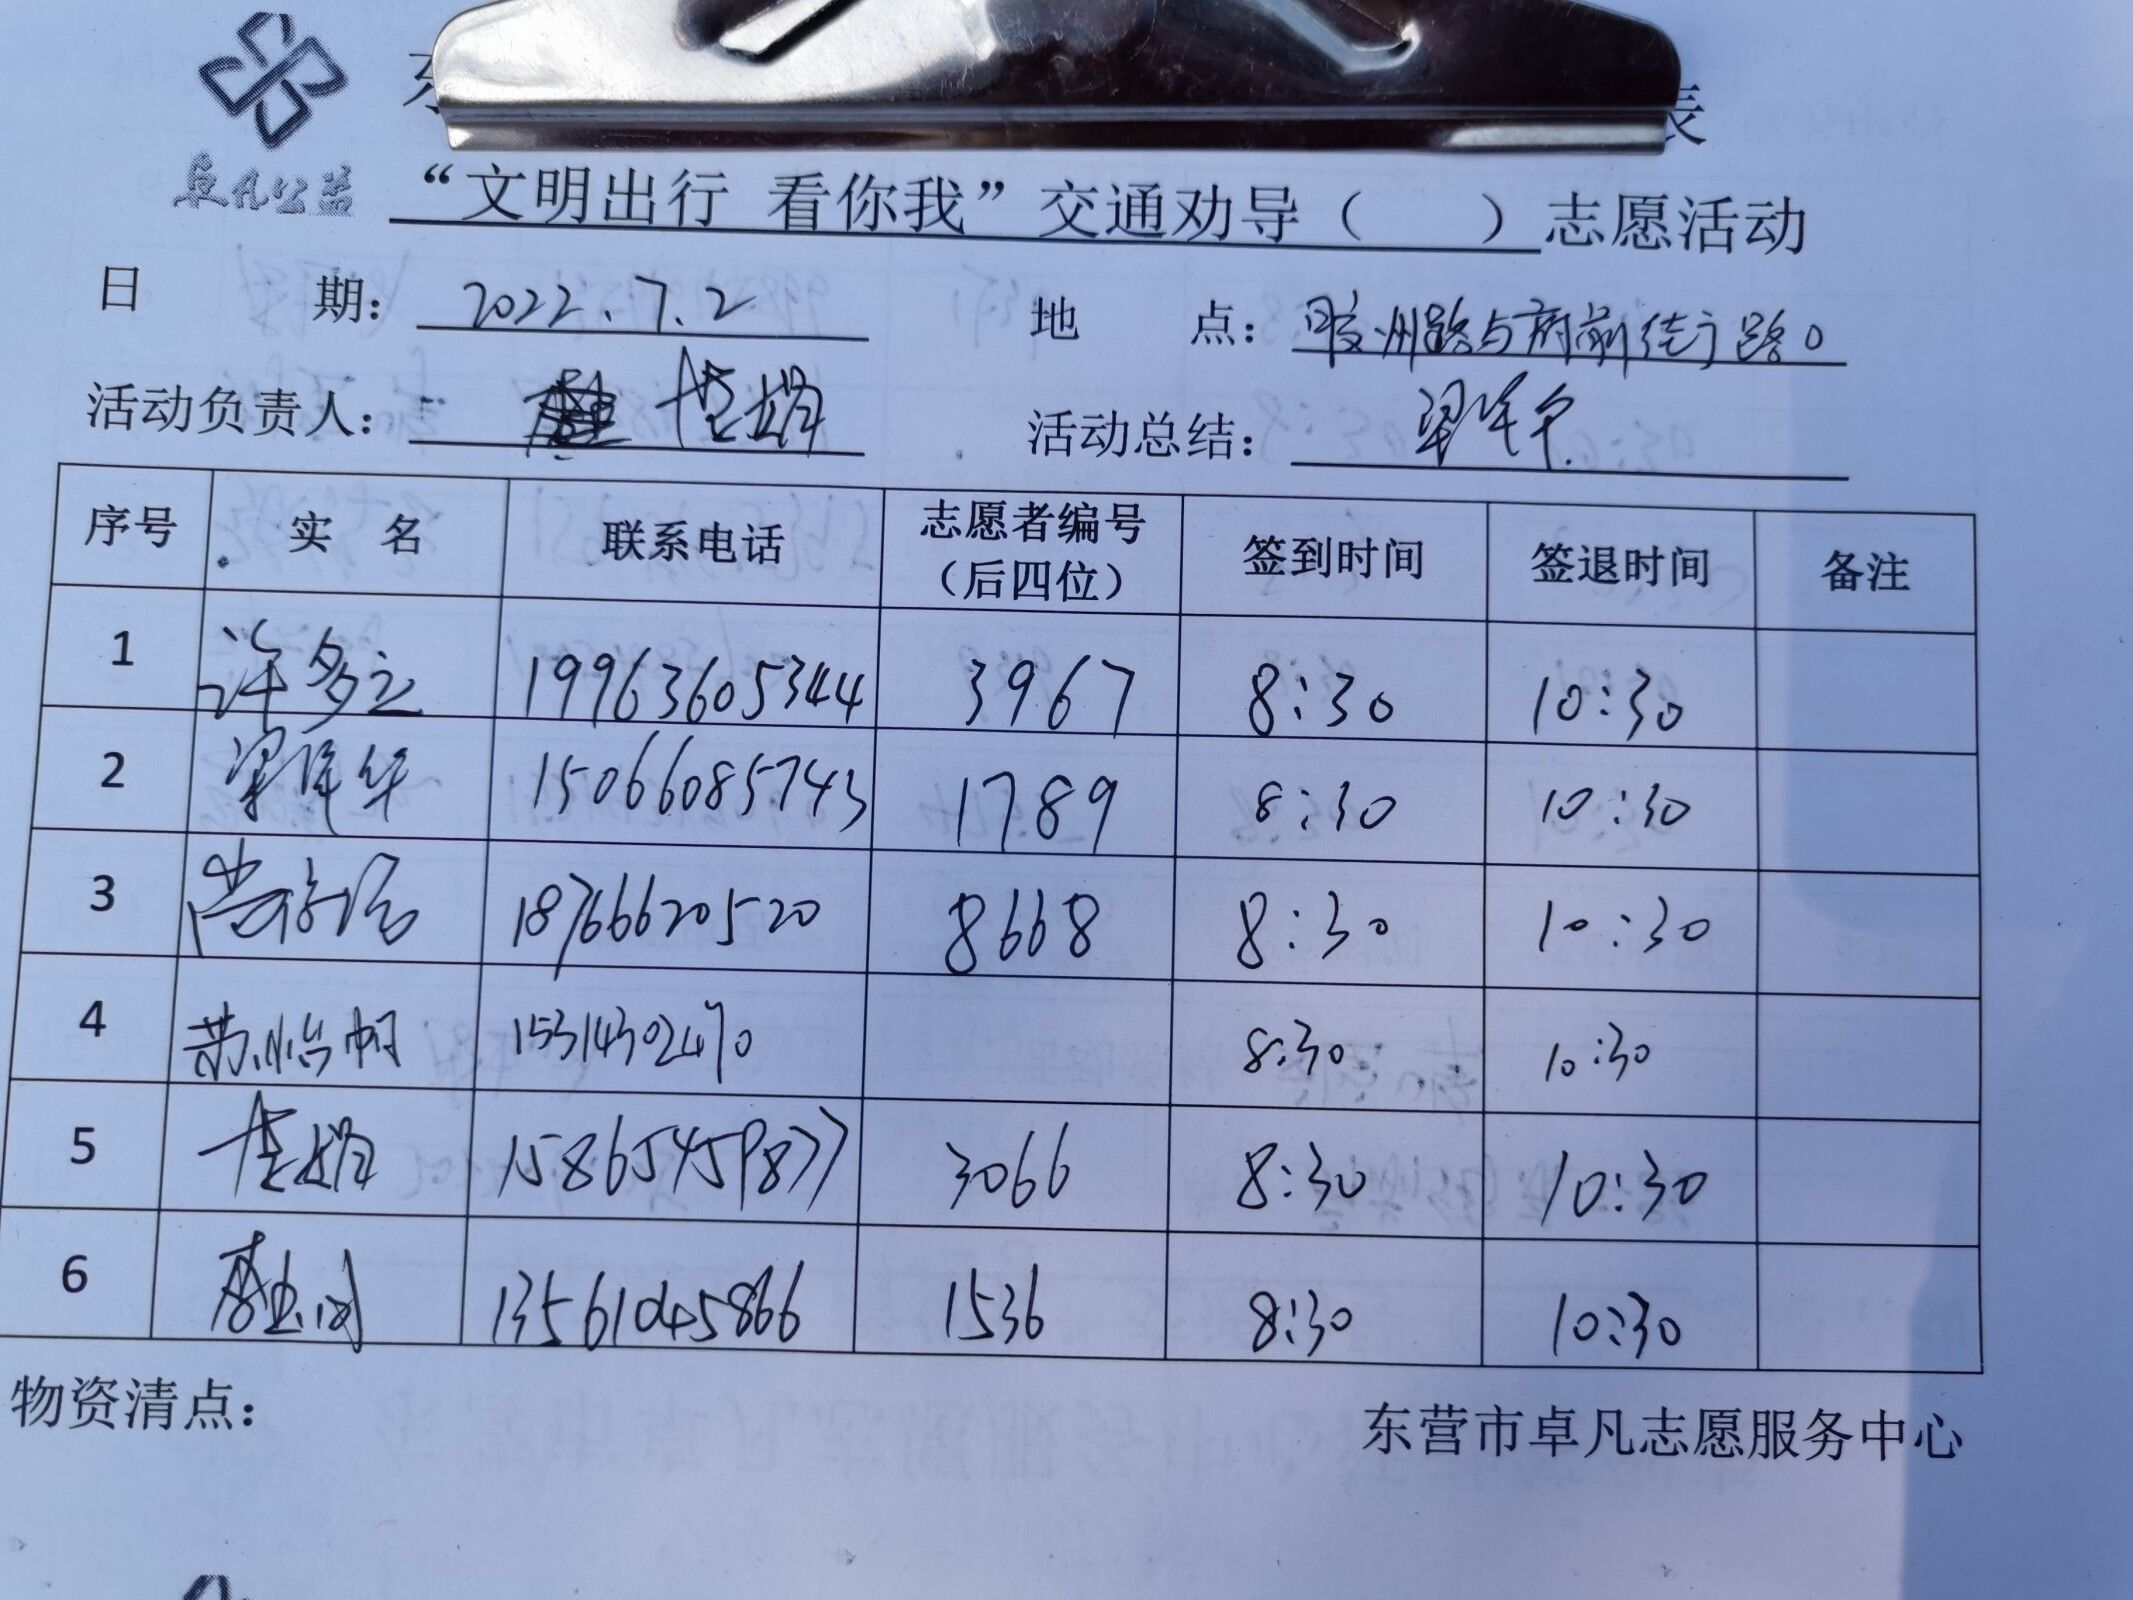 卓凡公益
东 表
“文明出行 看你我”交通劝导（ ）志愿活动
日 期： 2022.7.2 地 点： 胶州路与府前街路口
活动负责人： 活动总结：
序号 实 名 联系电话 志愿者编号（后四位） 签到时间 签退时间 备注
1 许多立 19963605344 3967 8:30 10:30
2 梁洋华 15066085743 1789 8:30 10:30
3 18766620520 8668 8:30 10:30
4 苏怡帆 15314302470 8:30 10:30
5 15865459877 3066 8:30 10:30
6 13561045866 1536 8:30 10:30
物资清点：
东营市卓凡志愿服务中心